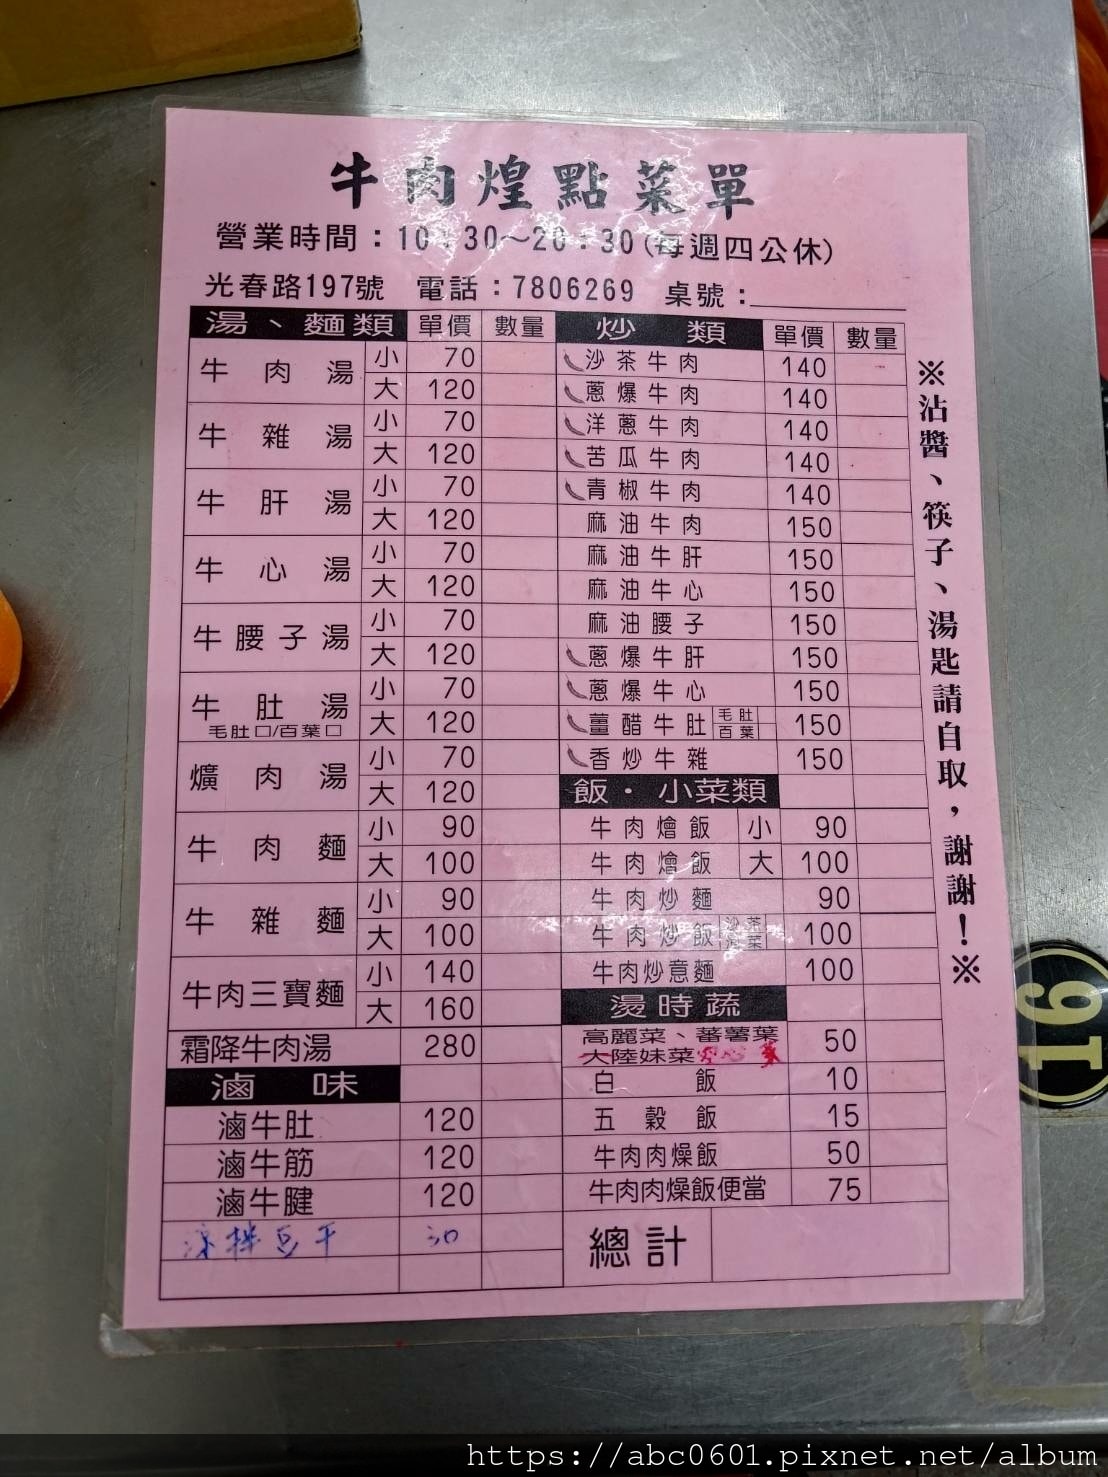 牛肉煌點菜單
營業時間：10：30～20：30(每週四公休)
光春路197號 電話：7806269 桌號：
湯、麵類 單價 數量
牛肉湯 小 70
大 120
牛雜湯 小 70
大 120
牛肝湯 小 70
大 120
牛心湯 小 70
大 120
牛腰子湯 小 70
大 120
牛肚湯 小 70
毛肚□/百葉□ 大 120
爌肉湯 小 70
大 120
牛肉麵 小 90
大 100
牛雜麵 小 90
大 100
牛肉三寶麵 小 140
大 160
霜降牛肉湯 280
滷味
滷牛肚 120
滷牛筋 120
滷牛腱 120
涼拌豆干 30
炒類 單價 數量
沙茶牛肉 140
蔥爆牛肉 140
洋蔥牛肉 140
苦瓜牛肉 140
青椒牛肉 140
麻油牛肉 150
麻油牛肝 150
麻油牛心 150
麻油腰子 150
蔥爆牛肝 150
蔥爆牛心 150
薑醋牛肚 毛肚 百葉 150
香炒牛雜 150
飯・小菜類
牛肉燴飯 小 90
牛肉燴飯 大 100
牛肉炒麵 90
牛肉炒飯 沙茶 100
牛肉炒意麵 100
燙時蔬
高麗菜、蕃薯葉 50
大陸妹菜 空心菜
白飯 10
五穀飯 15
牛肉肉燥飯 50
牛肉肉燥飯便當 75
總計
※沾醬、筷子、湯匙請自取，謝謝！※
19
https://abc0601.pixnet.net/album